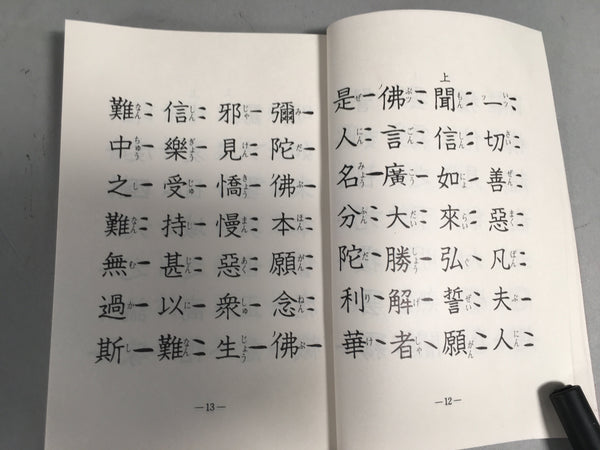 上
一切善惡凡夫人
聞信如來弘誓願
佛言廣大勝解者
是人名分陀利華
—12—
彌陀佛本願念佛
邪見憍慢惡衆生
信樂受持甚以難
難中之難無過斯
—13—